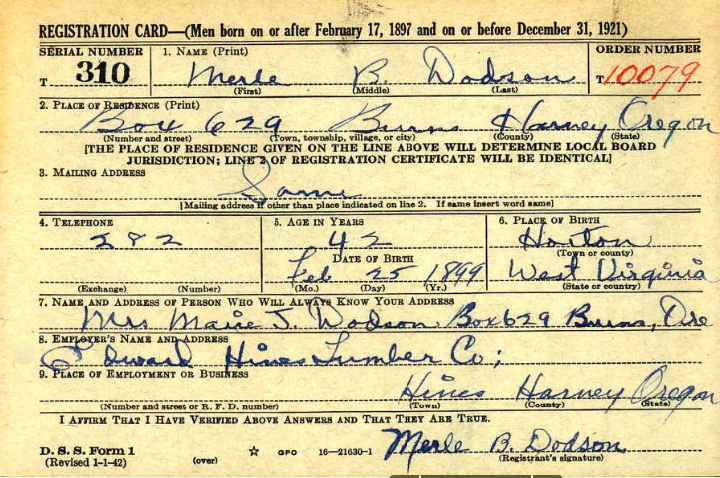 REGISTRATION CARD—(Men born on or after February 17, 1897 and on or before December 31, 1921)
SERIAL NUMBER 1. NAME (Print) ORDER NUMBER
T 310 Merle B. Dodson T 10079
(First) (Middle) (Last)
2. PLACE OF RESIDENCE (Print)
Box 629 Burns Harney Oregon
(Number and street) (Town, township, village, or city) (County) (State)
[THE PLACE OF RESIDENCE GIVEN ON THE LINE ABOVE WILL DETERMINE LOCAL BOARD
JURISDICTION; LINE 2 OF REGISTRATION CERTIFICATE WILL BE IDENTICAL]
3. MAILING ADDRESS
Same
[Mailing address if other than place indicated on line 2. If same insert word same]
4. TELEPHONE 5. AGE IN YEARS 6. PLACE OF BIRTH
282 42 Horton
DATE OF BIRTH (Town or county)
Feb 25 1899 West Virginia
(Exchange) (Number) (Mo.) (Day) (Yr.) (State or country)
7. NAME AND ADDRESS OF PERSON WHO WILL ALWAYS KNOW YOUR ADDRESS
Mrs Marie J. Dodson Box 629 Burns, Ore
8. EMPLOYER'S NAME AND ADDRESS
Edward Hines Lumber Co;
9. PLACE OF EMPLOYMENT OR BUSINESS
Hines Harney Oregon
(Number and street or R. F. D. number) (Town) (County) (State)
I AFFIRM THAT I HAVE VERIFIED ABOVE ANSWERS AND THAT THEY ARE TRUE.
D. S. S. Form 1 Merle B. Dodson
(Revised 1-1-42) (over) ☆ GPO 16—21630-1 (Registrant's signature)